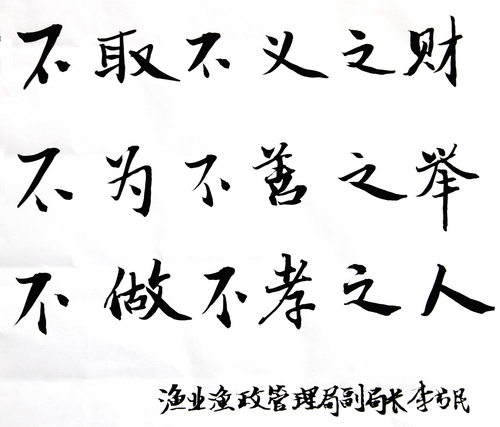 不取不义之财
不为不善之举
不做不孝之人
渔业渔政管理局副局长李书民